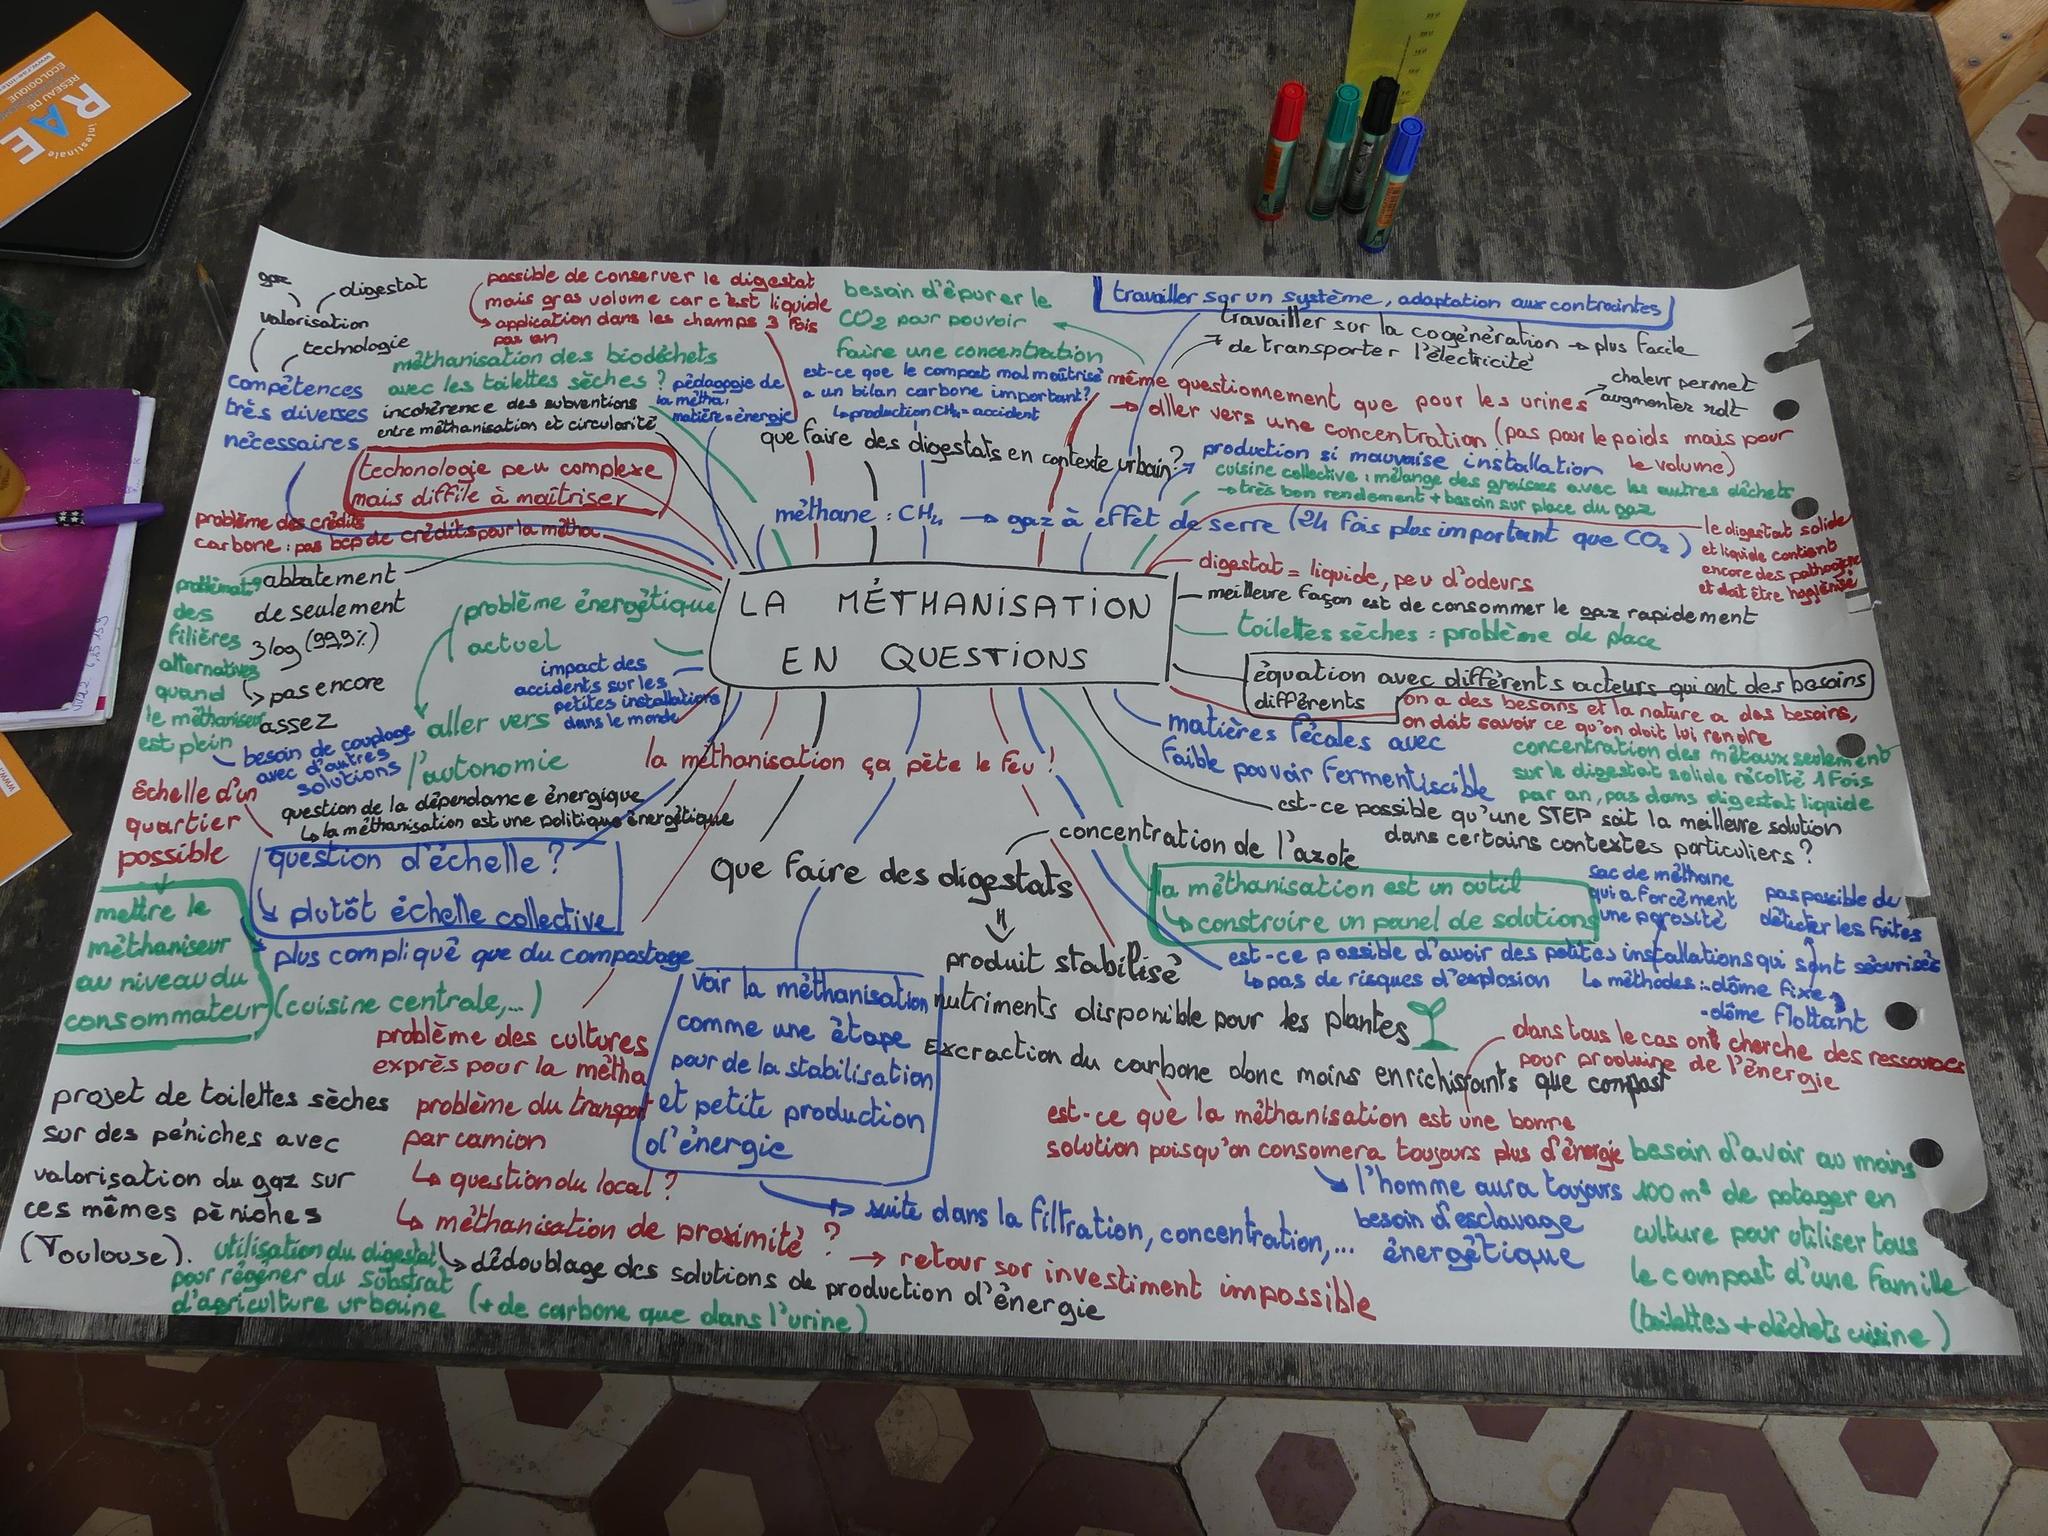 RÉSEAU DE
ÉCOLOGIQUE
RAE
intestinale
LA MÉTHANISATION
EN QUESTIONS
gaz
digestat
valorisation
technologie
compétences
très diverses
nécessaires
possible de conserver le digestat
mais gros volume car c'est liquide
application dans les champs 3 fois
par an
méthanisation des biodéchets
avec les toilettes sèches ?
incohérence des subventions
entre méthanisation et circularité
pédagogie de
la métha :
matière = énergie
techonologie peu complexe
mais diffile à maîtriser
problème des crédits
carbone : pas bcp de crédits pour la métha
besoin d'épurer le
CO2 pour pouvoir
faire une concentration
est-ce que le compost mal maîtrisé
a un bilan carbone important ?
production CH4 = accident
que faire des digestats en contexte urbain ?
méthane : CH4 → gaz à effet de serre (24 fois plus important que CO2)
production si mauvaise installation
travailler sur un système, adaptation aux contraintes
travailler sur la cogénération → plus facile
de transporter l'électricité
chaleur permet
augmenter rdt
même questionnement que pour les urines
→ aller vers une concentration (pas pour le poids mais pour
le volume)
cuisine collective : mélange des graisses avec les autres déchets
→ très bon rendement + besoin sur place du gaz
le digestat solide
et liquide contient
encore des pathogène
et doit être hygiénisé
digestat = liquide, peu d'odeurs
meilleure façon est de consommer le gaz rapidement
toilettes sèches : problème de place
équation avec différents acteurs qui ont des besoins
différents
on a des besoins et la nature a des besoins,
on doit savoir ce qu'on doit lui rendre
matières fécales avec
faible pouvoir fermentiscible
concentration des métaux seulement
sur le digestat solide récolté 1 fois
par an, pas dans digestat liquide
est-ce possible qu'une STEP soit la meilleure solution
dans certains contextes particuliers ?
abbatement
de seulement
3 log (99,9%)
pas encore
assez
des
filières
alternatives
quand
le méthaniseur
est plein
besoin de couplage
avec d'autres
solutions
problème énergétique
actuel
aller vers
l'autonomie
impact des
accidents sur les
petites installations
dans le monde
la méthanisation ça pète le feu !
question de la dépendance énergique
la méthanisation est une politique énergétique
Échelle d'un
quartier
possible
mettre le
méthaniseur
au niveau du
consommateur (cuisine centrale,...)
question d'échelle ?
plutôt échelle collective
plus compliqué que du compostage
Que faire des digestats
concentration de l'azote
produit stabilisé
nutriments disponible pour les plantes
Excraction du carbone donc moins enrichissants que compost
la méthanisation est un outil
construire un panel de solutions
sac de méthane
qui a forcément
une porosité
pas possible de
détecter les fuites
est-ce possible d'avoir des petites installations qui sont sécurisés
pas de risques d'explosion
méthodes : - dôme fixe
- dôme flottant
voir la méthanisation
comme une étape
pour de la stabilisation
et petite production
d'énergie
→ suite dans la filtration, concentration,...
problème des cultures
exprès pour la métha
problème du transport
par camion
question du local ?
méthanisation de proximité ?
dédoublage des solutions de production d'énergie
→ retour sur investiment impossible
dans tous le cas ont cherche des ressources
pour produire de l'énergie
est-ce que la méthanisation est une bonne
solution puisqu'on consomera toujours plus d'énergie
l'homme aura toujours
besoin d'esclavage
énergétique
besoin d'avoir au moins
100 m² de potager en
culture pour utiliser tous
le compost d'une famille
(toilettes + déchets cuisine)
projet de toilettes sèches
sur des péniches avec
valorisation du gaz sur
ces mêmes péniches
(Toulouse).
utilisation du digestat
pour régéner du substrat
d'agriculture urbaine (+ de carbone que dans l'urine)